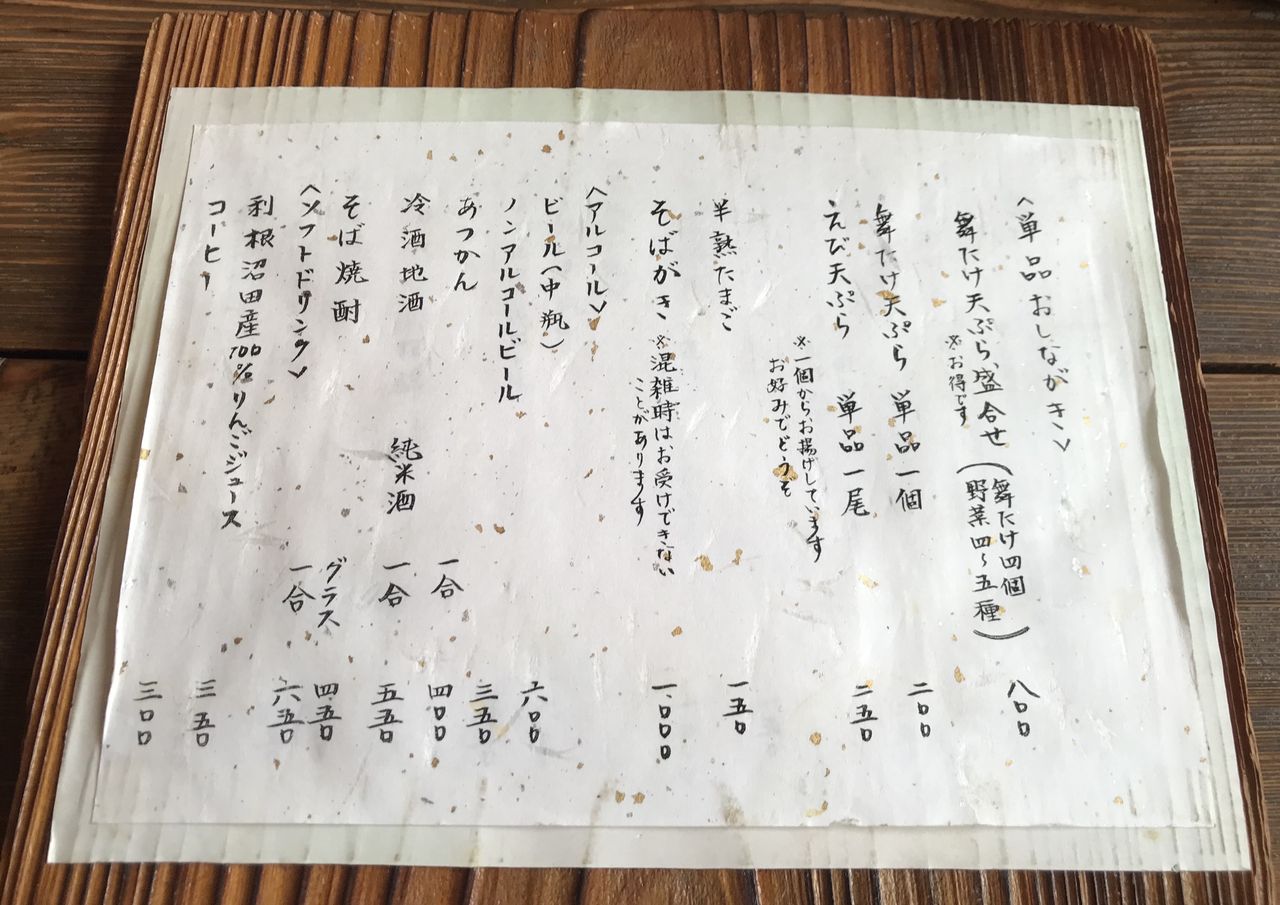 〈単品おしながき〉
舞たけ天ぷら盛合せ（舞たけ四個 野菜四～五種） 八〇〇
※お得です
舞たけ天ぷら 単品一個 二〇〇
えび天ぷら 単品一尾 二五〇
※一個からお揚げしています
お好みでどうぞ
半熟たまご 一五〇
そばがき ※混雑時はお受けできない 一、〇〇〇
ことがあります
〈アルコール〉
ビール（中瓶） 六〇〇
ノンアルコールビール 三五〇
あつかん 一合 四〇〇
冷酒 地酒 純米酒 一合 五五〇
そば焼酎 グラス 四五〇
一合 六五〇
〈ソフトドリンク〉
利根沼田産100%りんごジュース 三五〇
コーヒー 三〇〇